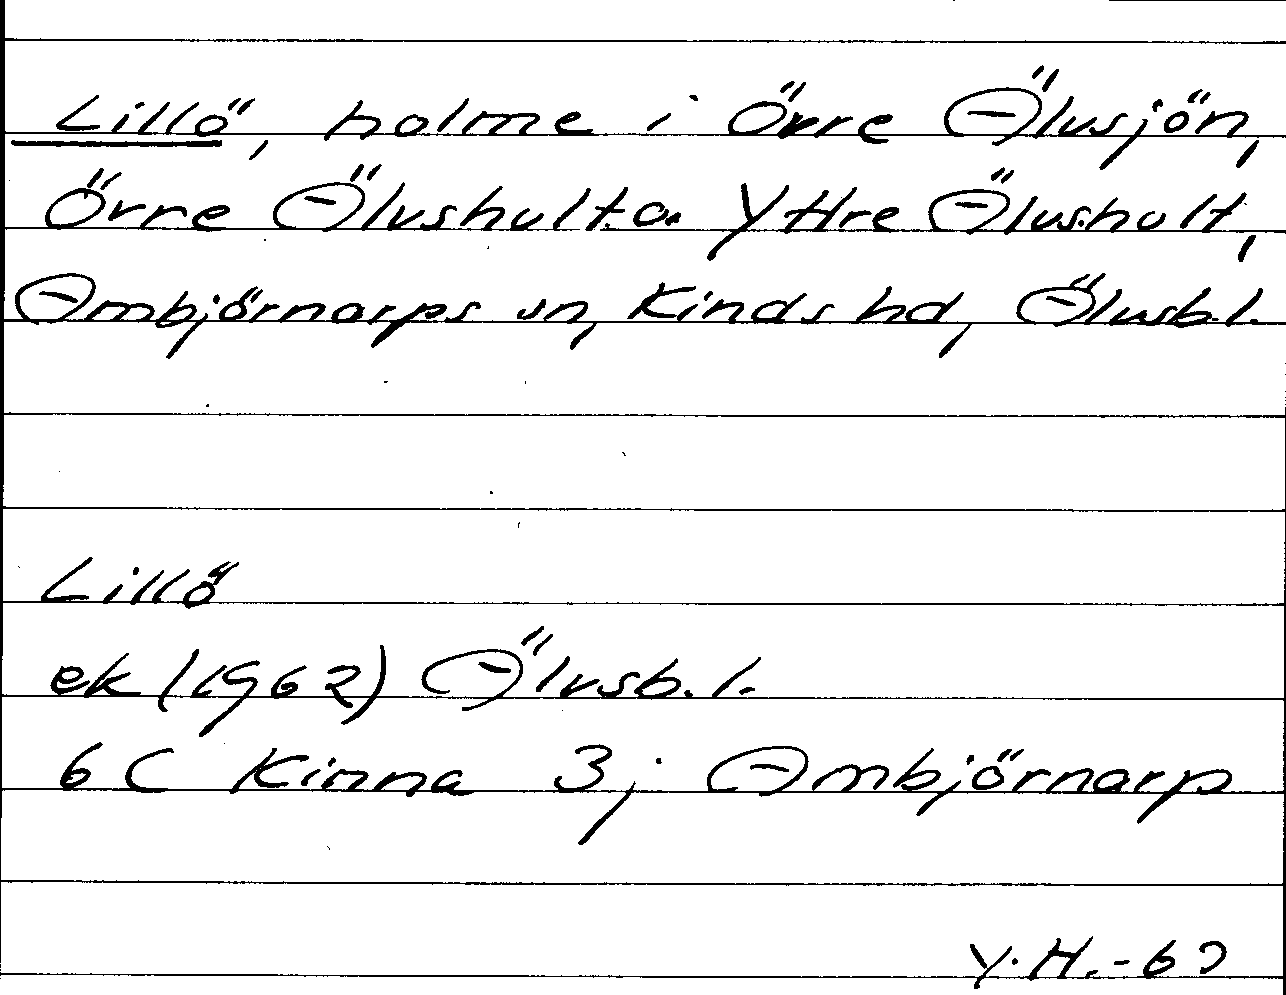 Lillö, holme i Övre Älvsjön,
Övre Älvshult o. Yttre Älvshult,
Ambjörnarps sn, Kinds hd, Älvsb.l.
Lillö
ek (1962) Älvsb.l.
6 C Kinna 3j Ambjörnarp
Y.H.